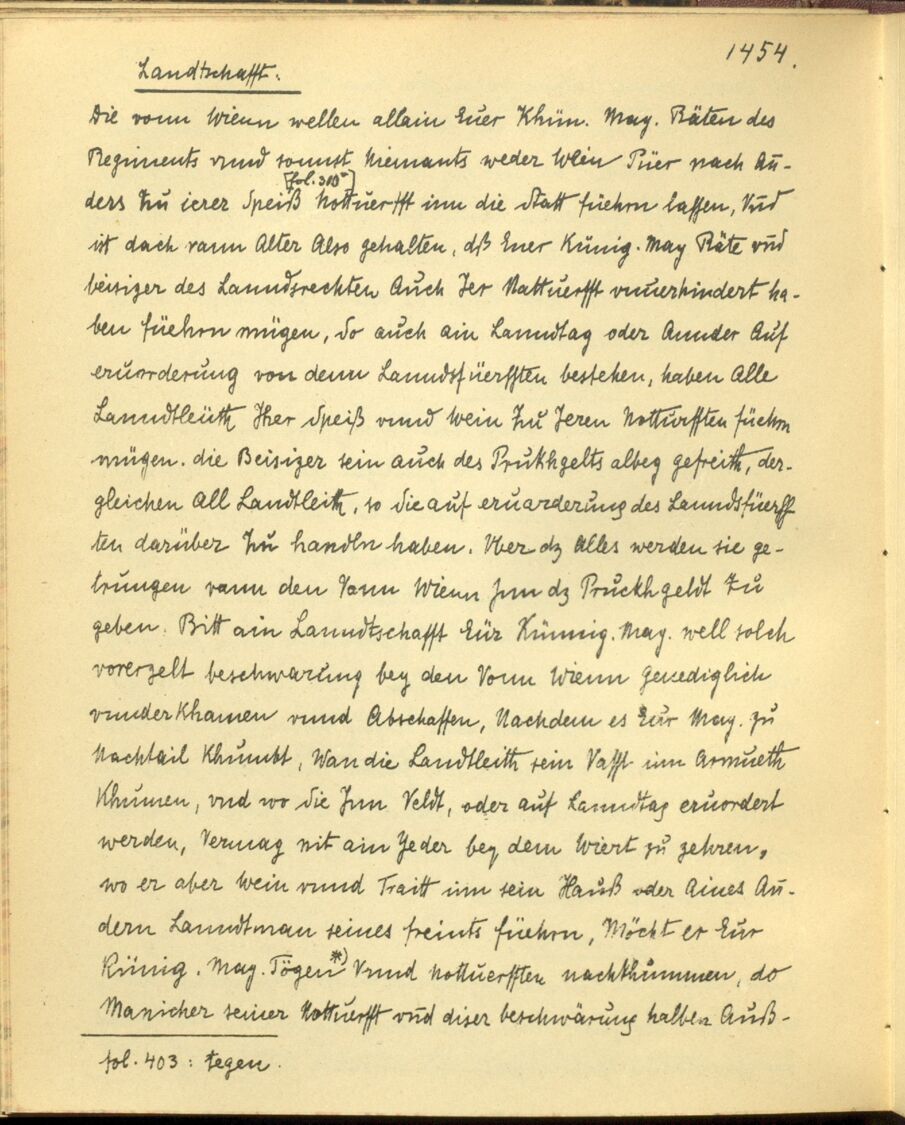 1454.
Landtschafft.
Die vonn Wienn wellen allain Euer Khün. May. Räten des
Regiments vnnd sonnst Niemants weder Wein Püer noch An-
[fol. 310ᵛ]
ders Zu ierer Speiß Nottuerfft inn die Statt füehrn lassen, Vnd
ist doch vonn Alter Also gehalten, dß Euer Künig. May Räte vnd
beisizer des Lanndsrechten Auch Jer Nottuerfft vnuerhindert ha-
ben füehrn mügen, So auch ain Lanndtag oder Annder Auf
eruorderung von denn Lanndsfüerssten bestehen, haben Alle
Lanndtleüth Jher Speiß vnnd Wein Zu Jeren Notturfften füehrn
mügen. die Beisizer sein auch des Prukhgelts albeg gefreith, der-
gleichen All Landtleith, so Sie auf eruorderung des Lanndsfüerss-
ten darüber Zu handln haben. Vber dz Alles werden sie ge-
trungen vonn den Vonn Wienn Jnn dz Pruckhgeldt Zu
geben. Bitt ain Lanndtschafft Eür Künnig. May. well solch
vorerzelt beschwarung bey den Vonn Wienn Genediglich
vnnderkhomen vnnd Abschaffen, Nachdem es Eur May. zu
Nachtail Khumbt, Wan die Landtleith sein Vasst inn Armueth
Khumen, vnd wo Sie Jnn Veldt, oder auf Lanndtag eruordert
werden, Vermag nit ain Yeder bey dem Wiert zu zehren,
wo er aber Wein vnnd Traitt inn sein Hauß oder Aines An-
dern Lanndtman seines freints füehrn, Möcht er Eur
Künig. May. Tögen *) Vnnd Nottuerfften nachkhummen, do
Manicher seiner Nottuerfft vnd diser beschwärung halben Auß-
fol. 403 : tegen.